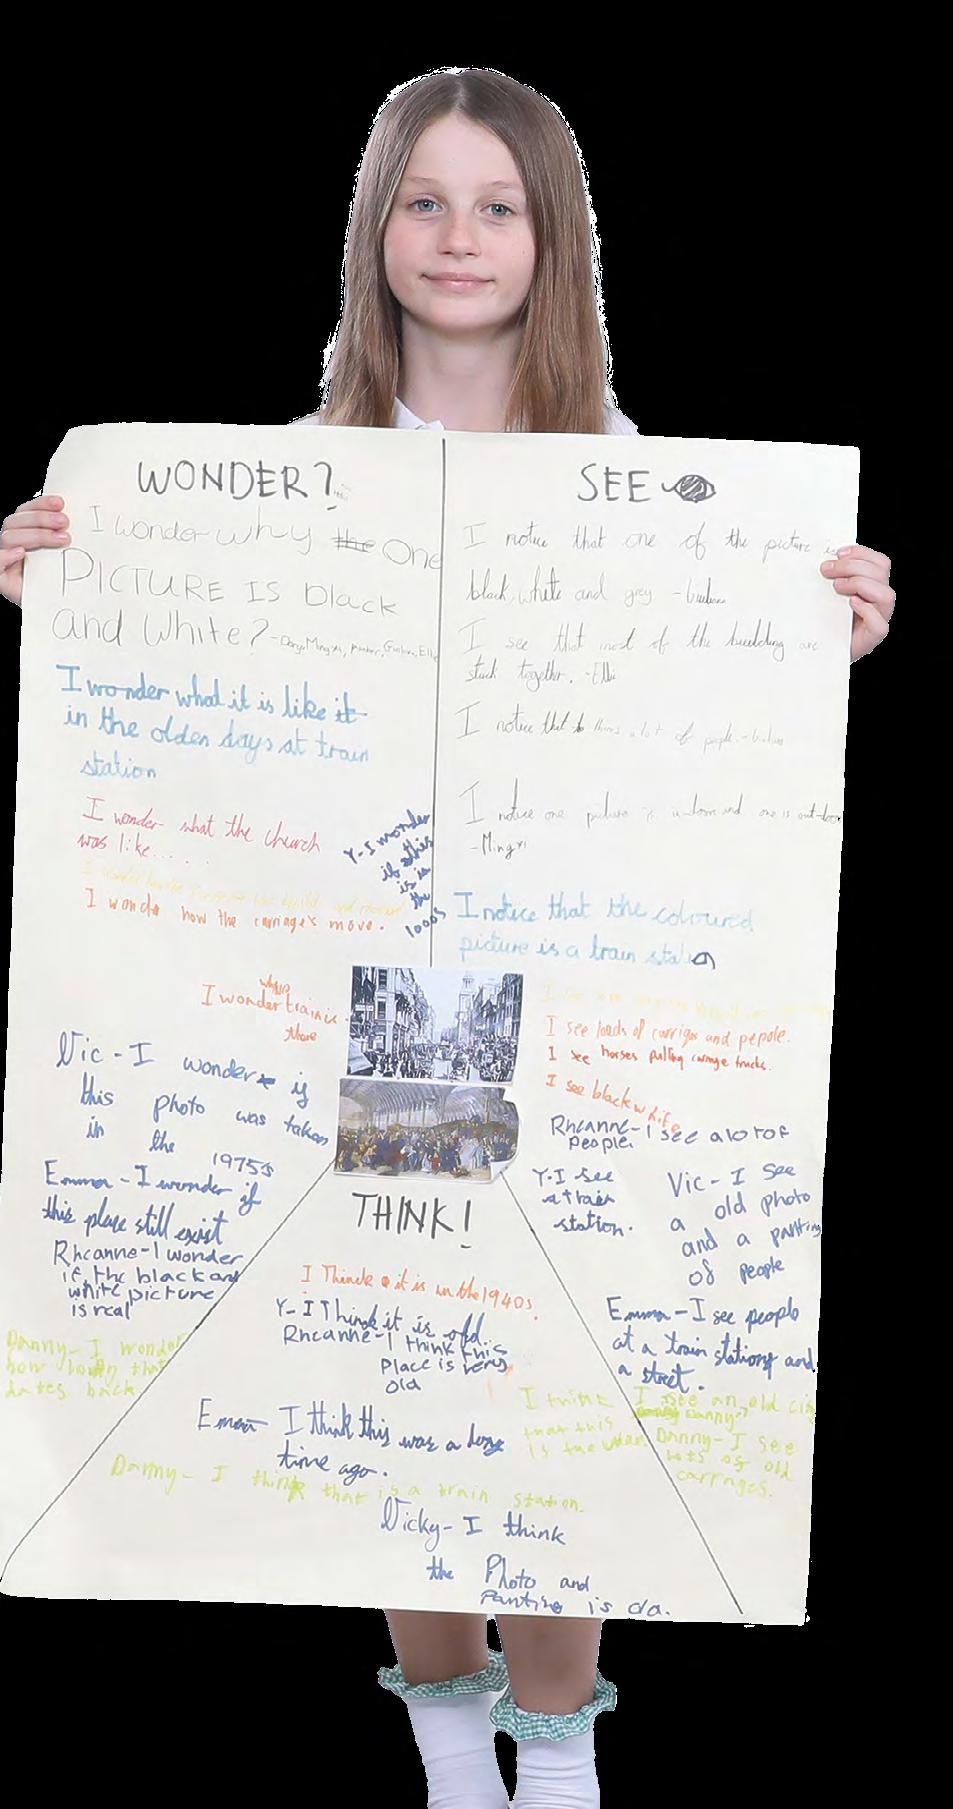 WONDER?
I wonder why the One
PICTURE IS black
and White? - Dary, Mingxi,
I wonder what it is like it
in the olden days at train
station
I wonder what the church
was like.....
I wonder how the carriages move.
Y-I wonder
if this
is in
the
1000s
I wonder train is
there
Vic - I wonder if
this photo was taken
in the
1975s
Emma - I wonder if
this place still exist
Rheanne-I wonder
if the black and
white picture
is real
Danny- I wonder
how long that
dates back
SEE
I notice that one of the picture is
black, white and grey
I see that most of the building are
stuck together. - Elli
I notice that a lot of people.
I notice one picture is indoor and one is out-door
- Mingxi
I notice that the coloured
picture is a train station
I see loads of carriges and pepole.
I see horses pulling carrage trucks.
I see black white
Rheanne-I see a lot of
people.
Y-I see
a train
station.
Vic - I see
a old photo
and a panting
of people
Emma - I see people
at a train stations and
a street.
I see an old city
Danny?
Danny- I see
lots of old
carrages.
THINK!
I Think it is in the 1940s.
Y-I Think it is old.
Rheanne-I think this
place is very
old
Emma- I think this was a long
time ago.
I think
that this
is the
Danny- I think that is a train station.
Vicky- I think
the Photo and
Panting is